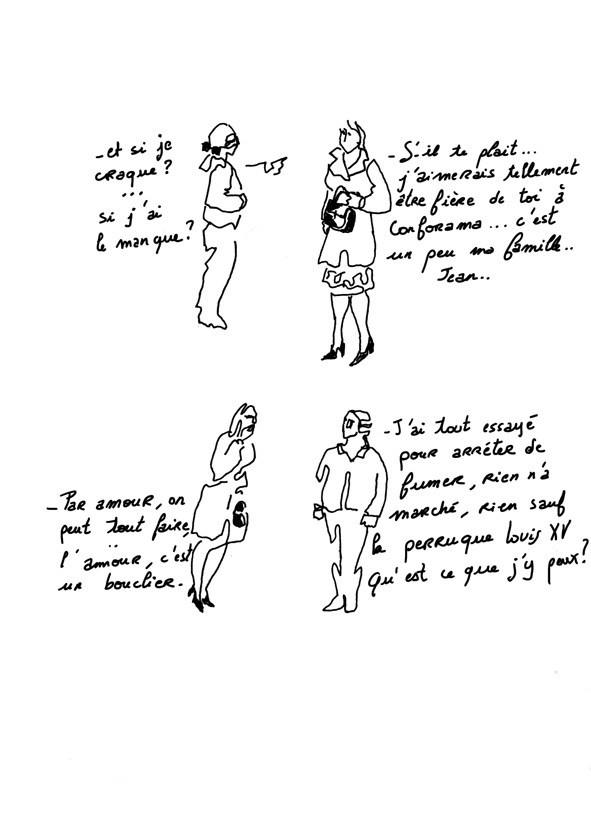 -et si je
craque?
...
si j'ai
le manque?
-S'il te plait...
j'aimerais tellement
être fière de toi à
Conforama... c'est
un peu ma famille..
Jean..
-Par amour, on
peut tout faire,
..
l'amour, c'est
un bouclier.
-J'ai tout essayé
pour arrêter de
fumer, rien n'a
marché, rien sauf
la perruque louis XV
qu'est ce que j'y peux?